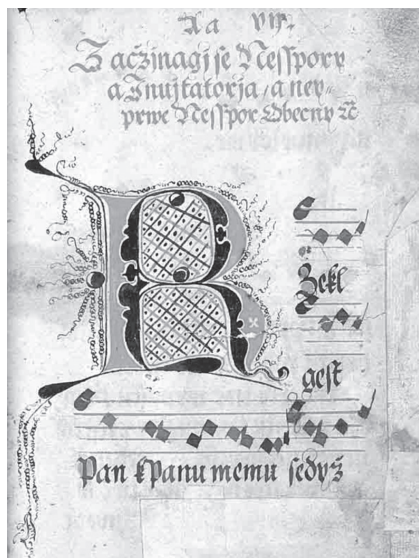 Začzinagi se Nesspory
a Inuitatorja, a ney⸗
prwe Nesspor Obecny ꝛč
R
Zekl
gest
Pan kPanu memu sedyž